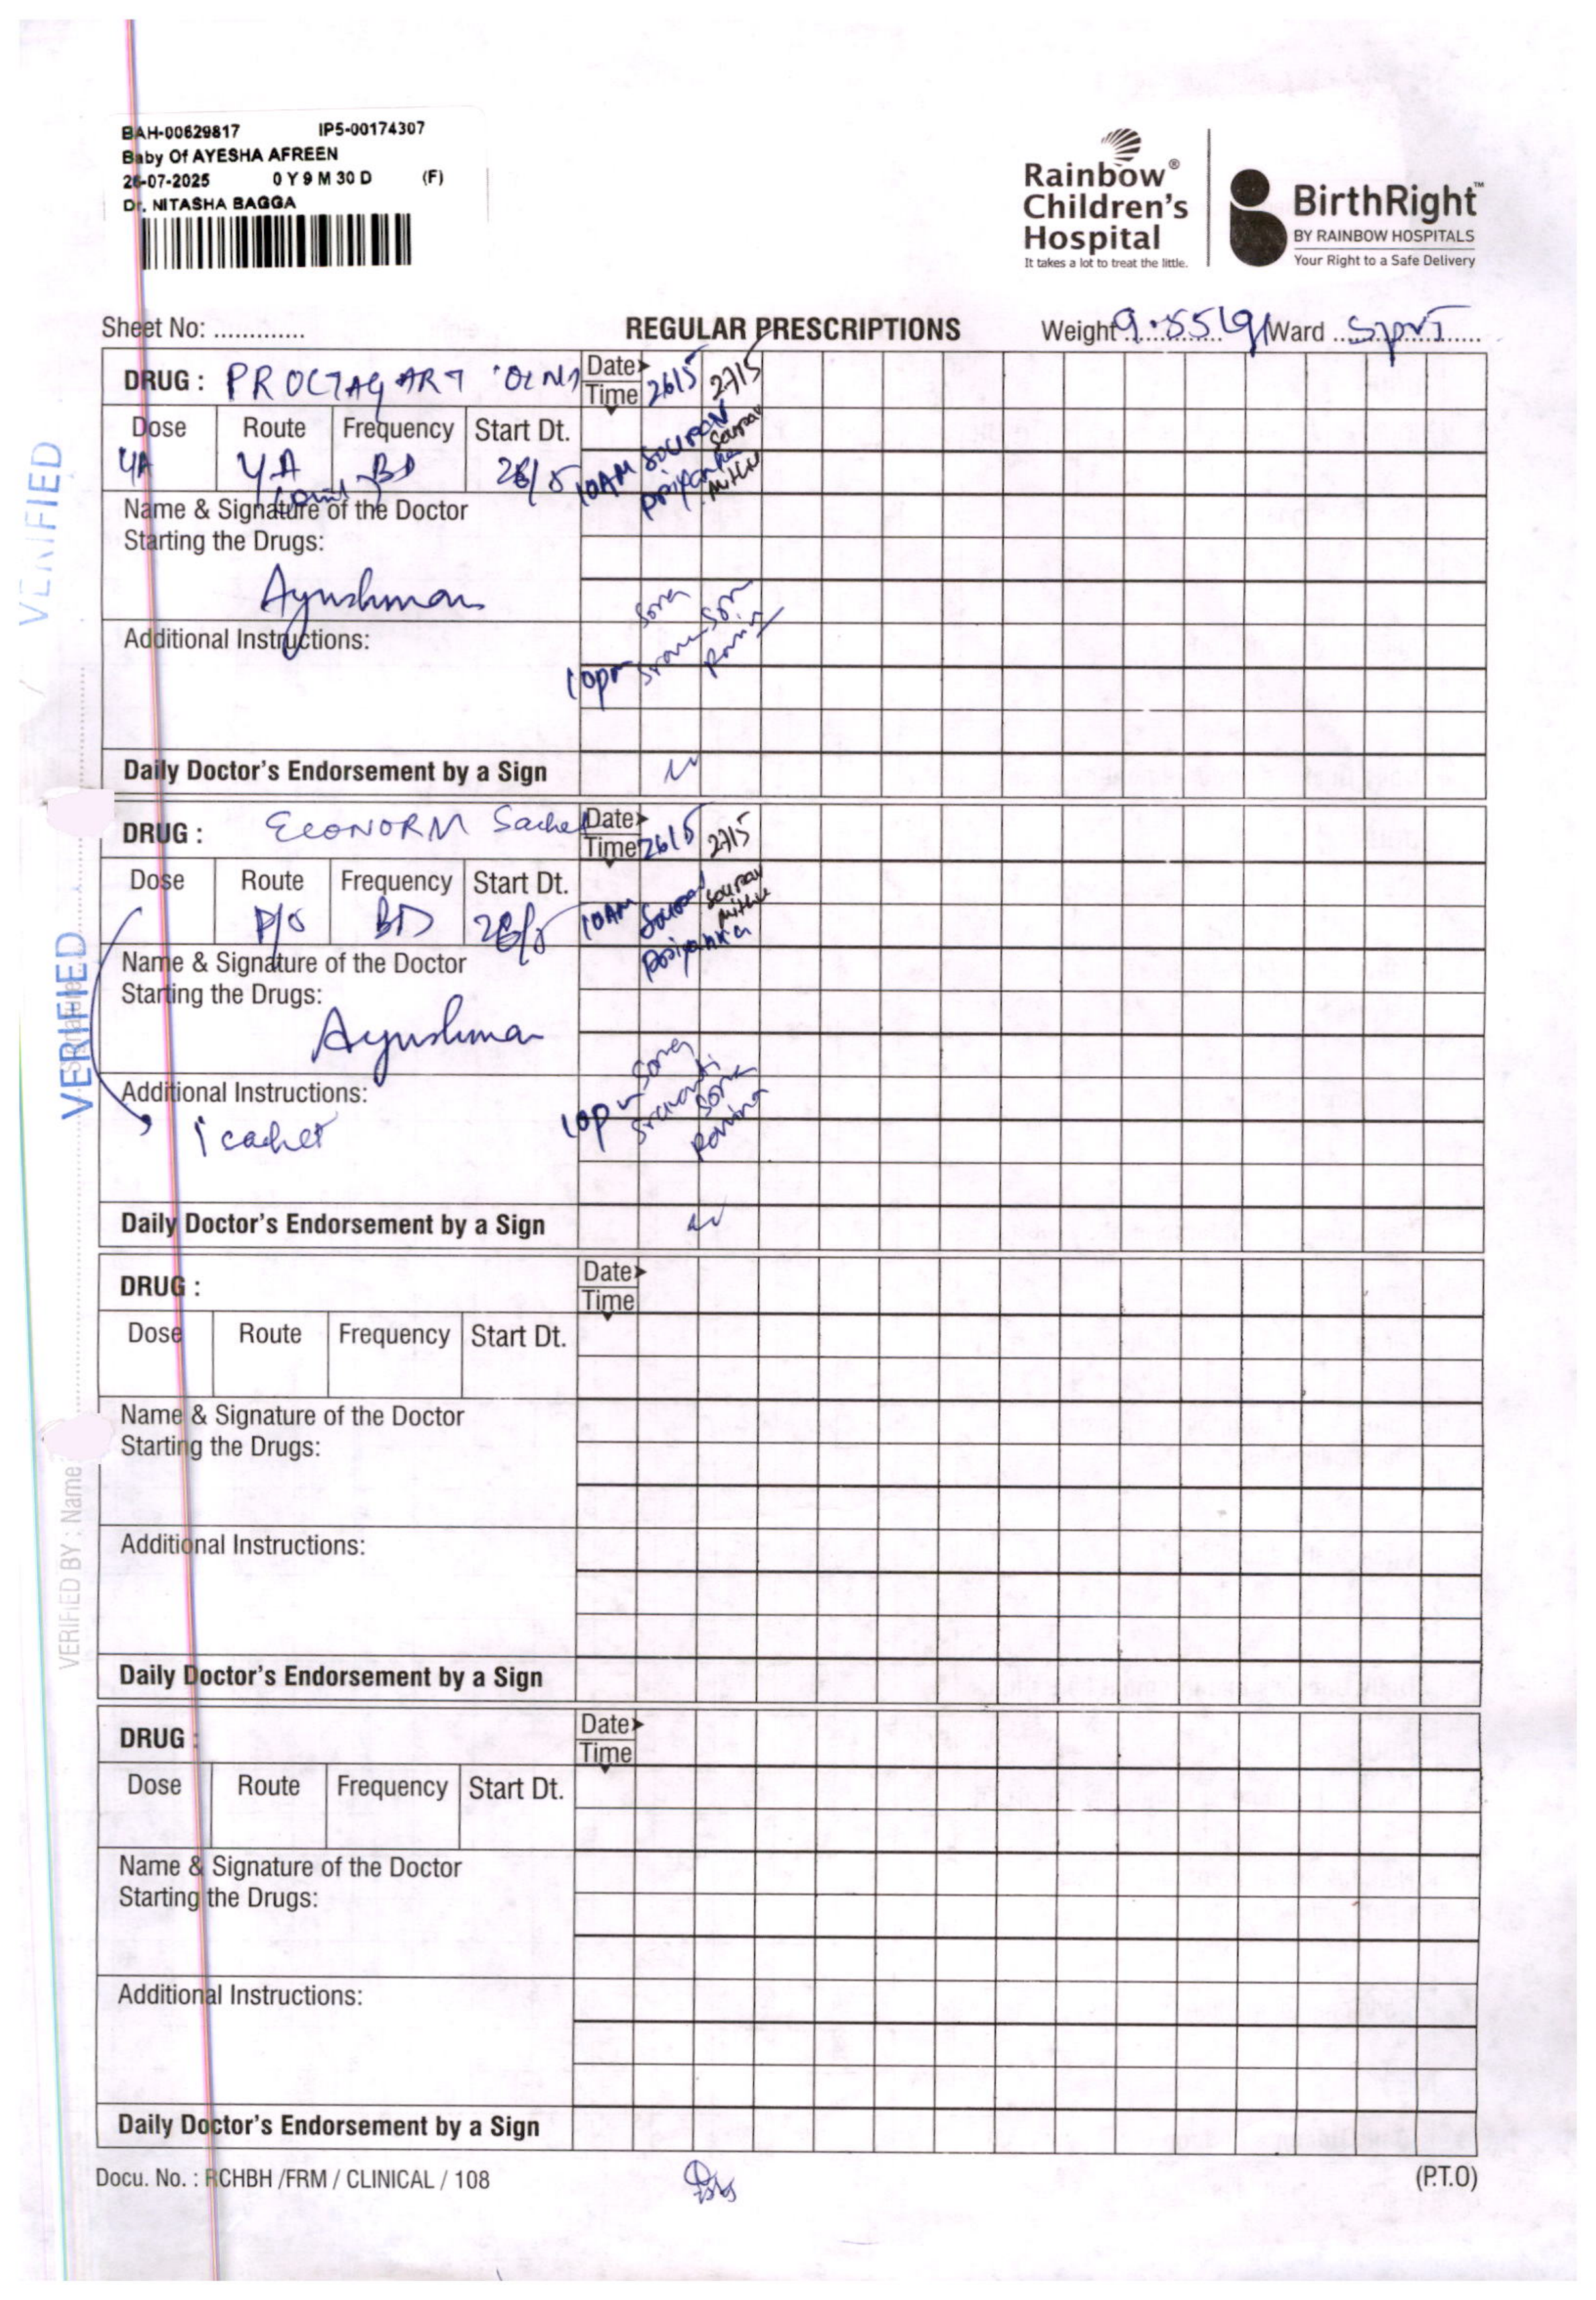 BAH-00629817 IP5-00174307
Baby Of AYESHA AFREEN
26-07-2025 0 Y 9 M 30 D (F)
Dr. NITASHA BAGGA
Rainbow®
Children's
Hospital
It takes a lot to treat the little.
BirthRight™
BY RAINBOW HOSPITALS
Your Right to a Safe Delivery
Sheet No: .............
REGULAR PRESCRIPTIONS
Weight Ward
DRUG : Date
Time 26/5 27/5
Dose Route Frequency Start Dt.
4A BD 26/5 10AM SOURAV Sourav
Priyanka Mithu
Name & Signature of the Doctor
Starting the Drugs:
Ayushman
Sona
Additional Instructions:
10pm
Daily Doctor's Endorsement by a Sign
DRUG : ECONORM Sachet Date
Time 26/5 27/5
Dose Route Frequency Start Dt.
P/O BD 26/5 10AM Sourav Sourav
Mithu
Priyanka
Name & Signature of the Doctor
Starting the Drugs:
Ayushman
Sona
Additional Instructions:
1 cachet 10p Sravanti Sona
Ravina
Daily Doctor's Endorsement by a Sign
DRUG : Date
Time
Dose Route Frequency Start Dt.
Name & Signature of the Doctor
Starting the Drugs:
Additional Instructions:
Daily Doctor's Endorsement by a Sign
DRUG : Date
Time
Dose Route Frequency Start Dt.
Name & Signature of the Doctor
Starting the Drugs:
Additional Instructions:
Daily Doctor's Endorsement by a Sign
Docu. No. : RCHBH /FRM / CLINICAL / 108
(P.T.O)
VERIFIED
VERIFIED
VERIFIED BY : Name
Signature